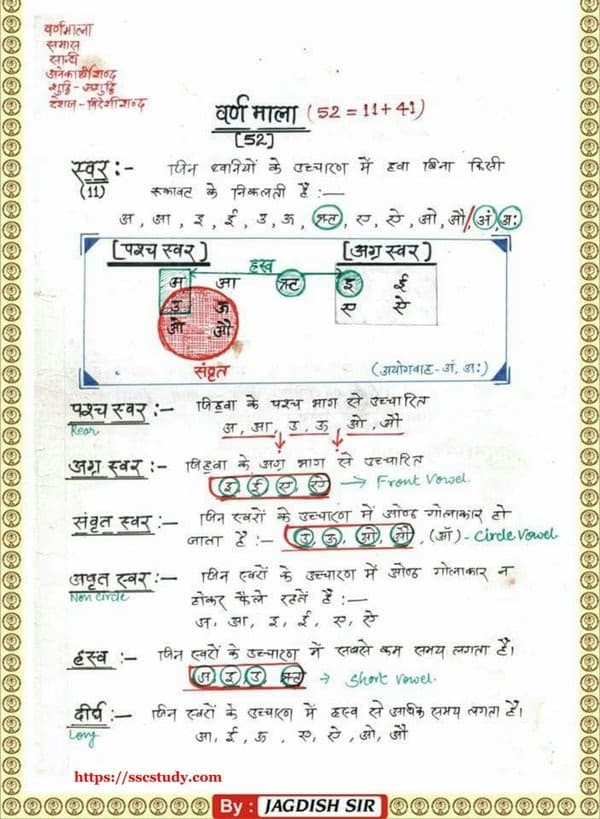 वर्णमाला
समास
सन्धि
अनेकार्थी शब्द
शुद्धि - अशुद्धि
देशज - विदेशी शब्द
वर्ण माला (52 = 11 + 41)
[52]
स्वर :- जिन ध्वनियों के उच्चारण में हवा बिना किसी
(11) रूकावट के निकलती है :—
अ, आ, इ, ई, उ, ऊ, ऋ, ए, ऐ, ओ, औ/, अं, अः
[पश्च स्वर] ह्रस्व [अग्र स्वर]
अ आ ऋ इ ई
उ ऊ ए ऐ
ओ औ
संवृत (अयोगवाह - अं, अः)
पश्च स्वर :— जिहवा के पश्च भाग से उच्चारित
Rear अ, आ, उ, ऊ, ओ, औ
अग्र स्वर :— जिहवा के अग्र भाग से उच्चारित
इ ई ए ऐ → Front Vowel.
संवृत स्वर :— जिन स्वरों के उच्चारण में ओष्ठ गोलाकार हो
जाता है :— उ, ऊ, ओ, औ, (ऑ) - Circle Vowel
अवृत स्वर :— जिन स्वरों के उच्चारण में ओष्ठ गोलाकार न
Non Circle होकर फैले रहतें है :—
अ, आ, इ, ई, ए, ऐ
ह्रस्व :— जिन स्वरों के उच्चारण में सबसे कम समय लगता है।
अ, इ, उ, ऋ → Short Vowel.
दीर्घ :— जिन स्वरों के उच्चारण में ह्रस्व से अधिक समय लगता है।
Long आ, ई, ऊ, ए, ऐ, ओ, औ
https://sscstudy.com
By : JAGDISH SIR